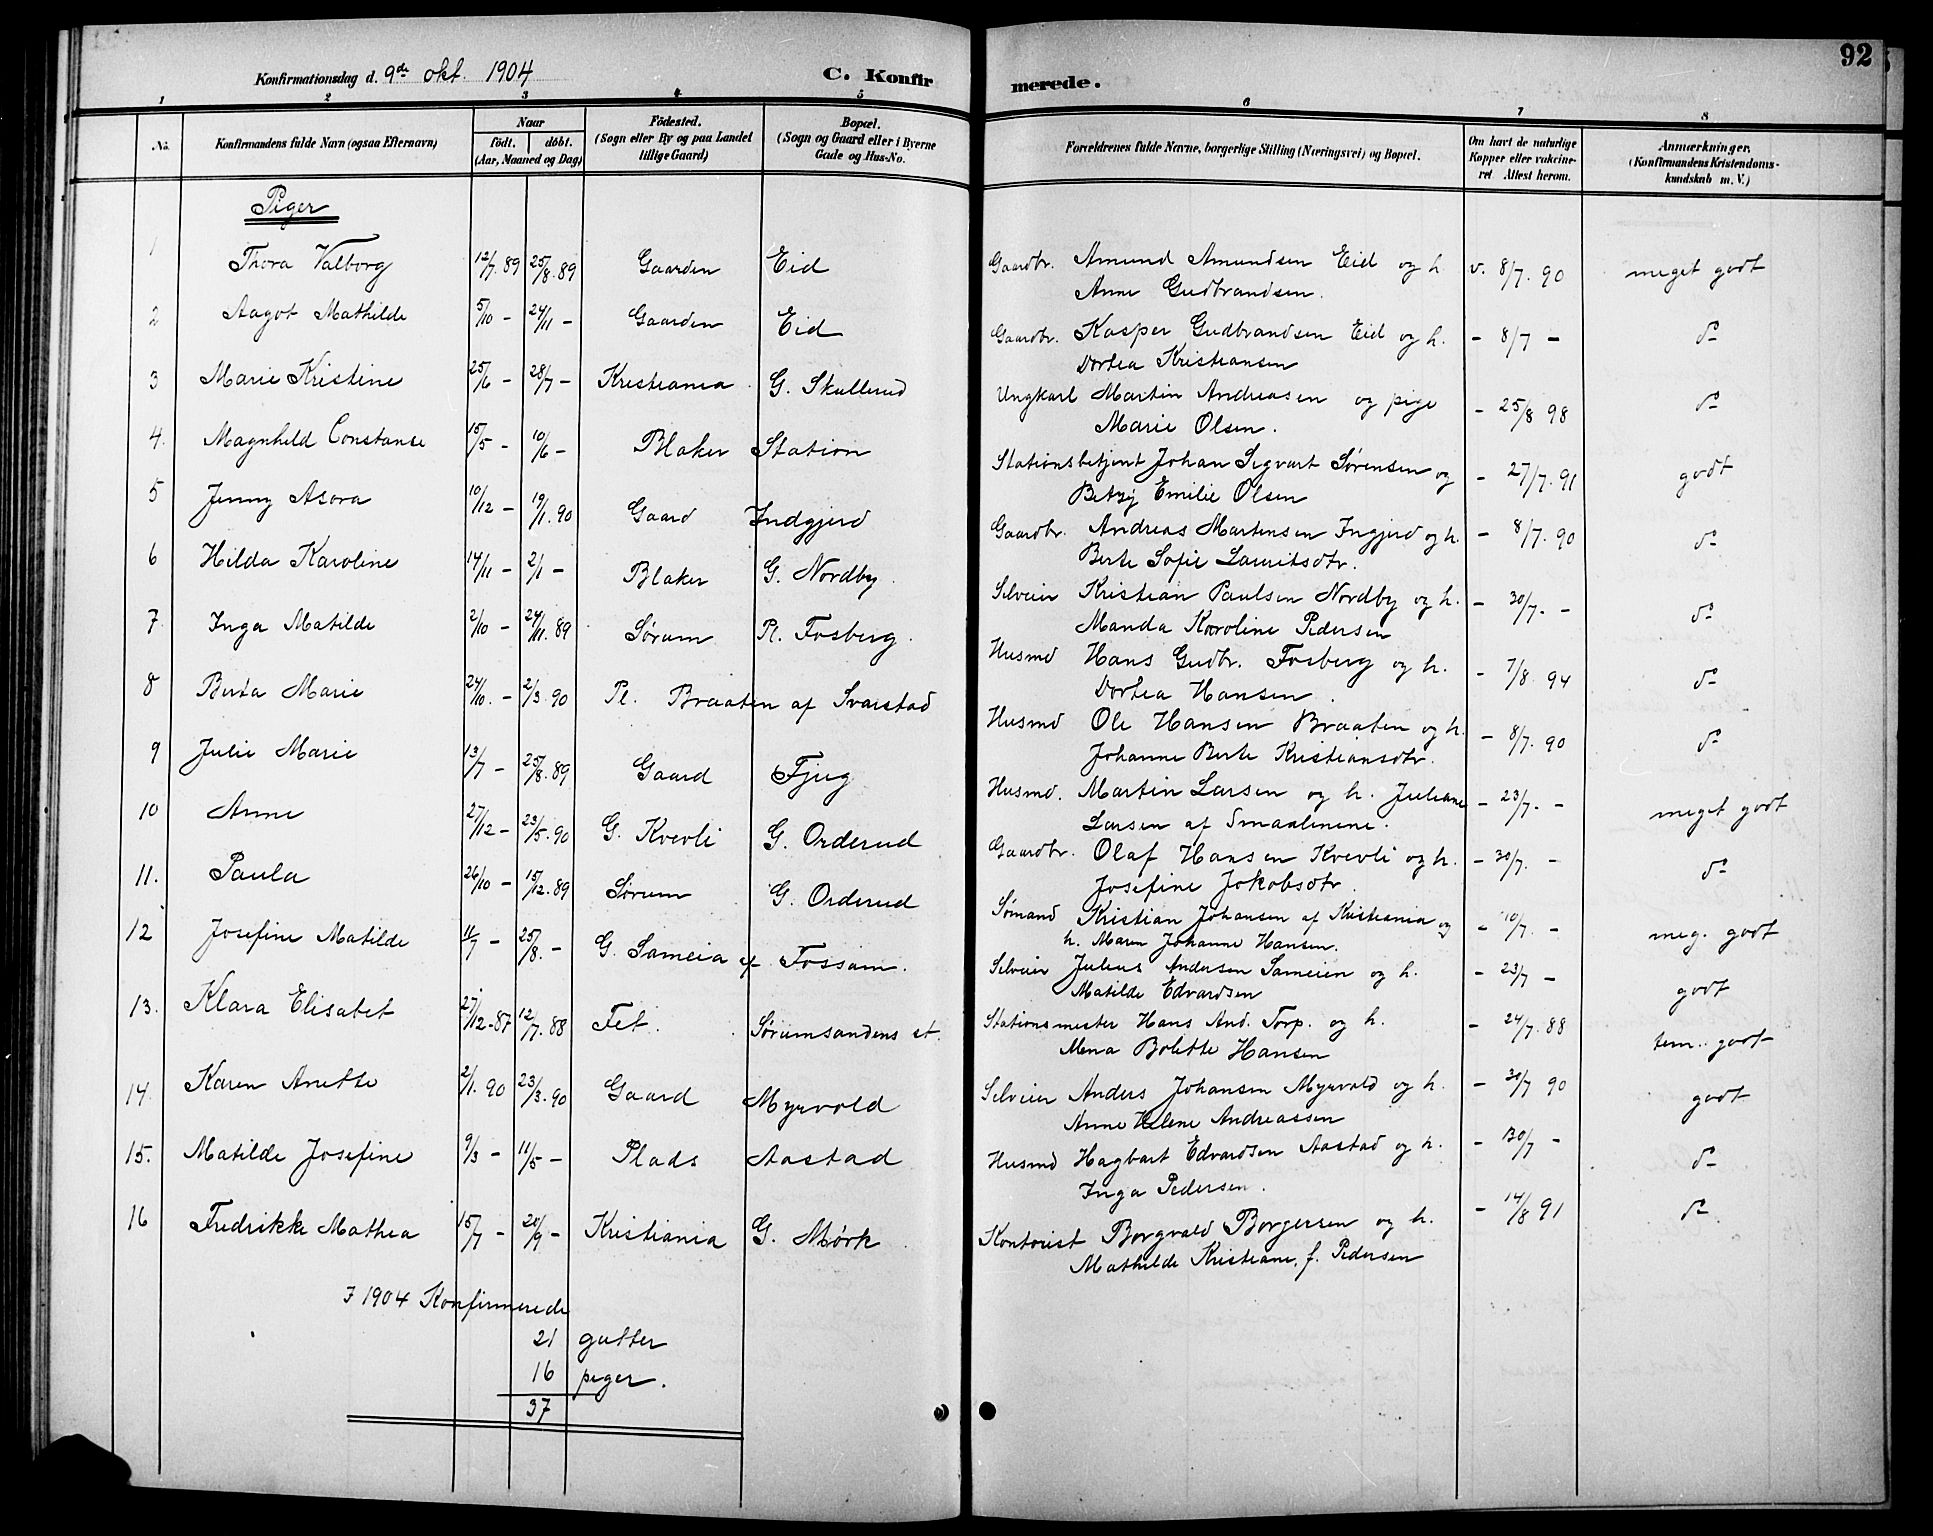 92
Konfirmationsdag d. 9de okt. 1904
C. Konfirmerede.
1 2 3 4 5 6 7 8
No.
Konfirmandens fulde Navn (ogsaa Efternavn)
Naar
født. døbt.
(Aar, Maaned og Dag)
Fødested.
(Sogn eller By og paa Landet
tillige Gaard)
Bopæl.
(Sogn og Gaard eller i Byerne
Gade og Hus-No.
Forældrenes fulde Navne, borgerlige Stilling (Næringsvei) og Bopæl.
Om havt de naturlige
Kopper eller vakcine-
ret Attest herom.
Anmærkninger.
(Konfirmandens Kristendoms-
kundskab m. V.)
Piger
1 Thora Valborg 12/7 89 25/8 89 Gaarden Eid Gaardbr. Amund Amundsen Eid og h. v. 8/7. 90 meget godt
Anne Gudbrandsen.
2 Aagot Mathilde 5/10 - 24/11 - Gaarden Eid Gaardbr. Kasper Gudbrandsen Eid og h. - 8/7 - do
Dortea Kristiansen
3 Marie Kristine 25/6 - 28/7 - Kristiania G. Skullerud Ungkarl Martin Andreasen og pige - 25/8 98 do
Marie Olsen.
4. Magnhild Constanse 15/5 - 10/6 - Blaker Station Stationsbetjent Johan Sigvart Sørensen og - 27/7. 91 godt
Betzy Emilie Olsen
5 Jenny Asora 10/12 - 19/1. 90 Gaard Indgjerd Gaardbr. Andreas Martinsen Ingjerd og h. - 8/7. 90 do
Berte Sofie Lauritsdtr.
6 Hilda Karoline 14/11 - 2/1 - Blaker G. Nordby. Selveier Kristian Paulsen Nordby og h. - 30/7. - do
Manda Karoline Pedersen
7. Inga Matilde 2/10 - 24/11. 89 Sørum Pl. Fosberg. Husmd Hans Gudbr. Fosberg og h. - 7/8. 94 do
Dortea Hansen.
8 Berta Marie 24/10. - 2/3. 90 Pl. Braaten af Svarstad Husmd Ole Hansen Braaten og h. - 8/7. 90 do
Johanne Berte Kristiansdtr.
9 Julie Marie 13/7 - 25/8. 89 Gaard Fjug Husmd. Martin Larsen og h. Juliane - 23/7. - meget godt
Larsen af Smaalenene.
10 Anne 27/12 - 23/5. 90 G. Kvevli G. Orderud Gaardbr. Olaf Hansen Kvevli og h. - 30/7. - do
Josefine Jokobsdtr.
11. Paula 26/10 - 15/12. 89 Sørum G. Orderud Sømand Kristian Johansen af Kristiania og - 10/7. - meg. godt
h. Maren Johanne Hansen.
12 Josefine Matilde 11/7 - 25/8. - G. Sameia af Fossum. Selveier Julius Andersen Sameien og h. - 23/7 - godt
Matilde Edvardsen
13. Klara Elisabet 27/12-87 12/7. 88 Fet. Sørumsandens st. Stationsmester Hans And. Torp. og h. - 24/7. 88 tem. godt
Mena Bolette Hansen
14. Karen Anette 2/1. 90 23/3. 90 Gaard Myrvold Selveier Anders Johansen Myrvold og h. - 30/7 90 godt
Anne Helene Andreassen
15. Matilde Josefine 9/3 - 11/5 - Plads Aastad Husmd Hagbart Edvardsen Aastad og h. - 30/7 - do
Inga Pedersen.
16 Fredrikke Mathea 15/7 - 20/9 - Kristiania G. Mørk Kontorist Borgvald Borgersen og h. - 14/8 91 do
Mathilde Kristiane, f. Pedersen
I 1904 Konfirmerede
21 gutter
16 piger.
37